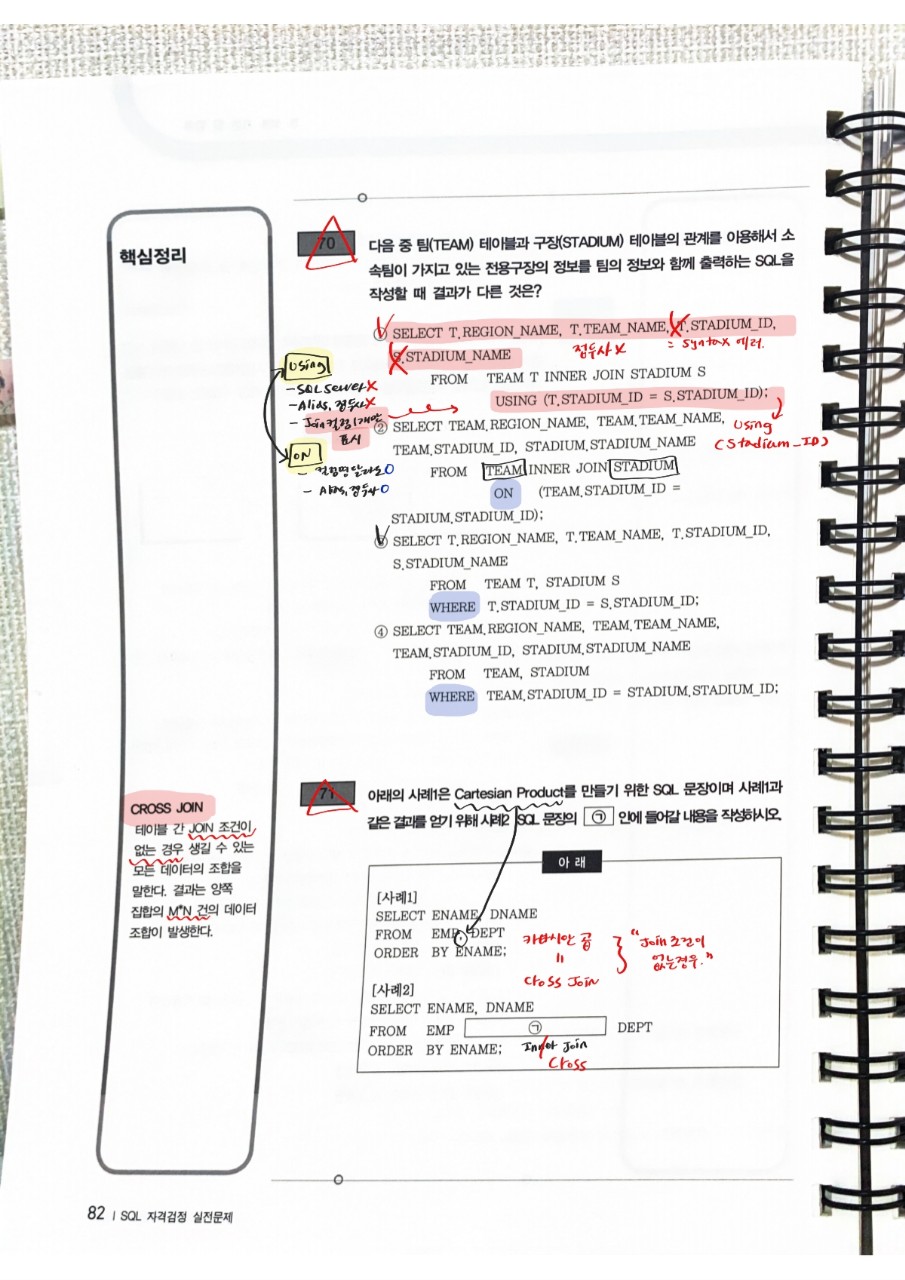 핵심정리
70
다음 중 팀(TEAM) 테이블과 구장(STADIUM) 테이블의 관계를 이용해서 소
속팀이 가지고 있는 전용구장의 정보를 팀의 정보와 함께 출력하는 SQL을
작성할 때 결과가 다른 것은?
① SELECT T.REGION_NAME, T.TEAM_NAME, T.STADIUM_ID,
S.STADIUM_NAME
접두사 X
= Syntax 에러.
FROM TEAM T INNER JOIN STADIUM S
USING (T.STADIUM_ID = S.STADIUM_ID);
Using
(Stadium_ID)
Using
- SQL Server X
- Alias, 접두사 X
- Join컬럼 1개만
표시
ON
- 컬럼명 달라도 O
- Alias, 접두사 O
② SELECT TEAM.REGION_NAME, TEAM.TEAM_NAME,
TEAM.STADIUM_ID, STADIUM.STADIUM_NAME
FROM TEAM INNER JOIN STADIUM
ON (TEAM.STADIUM_ID =
STADIUM.STADIUM_ID);
③ SELECT T.REGION_NAME, T.TEAM_NAME, T.STADIUM_ID,
S.STADIUM_NAME
FROM TEAM T, STADIUM S
WHERE T.STADIUM_ID = S.STADIUM_ID;
④ SELECT TEAM.REGION_NAME, TEAM.TEAM_NAME,
TEAM.STADIUM_ID, STADIUM.STADIUM_NAME
FROM TEAM, STADIUM
WHERE TEAM.STADIUM_ID = STADIUM.STADIUM_ID;
CROSS JOIN
테이블 간 JOIN 조건이
없는 경우 생길 수 있는
모든 데이터의 조합을
말한다. 결과는 양쪽
집합의 M*N 건의 데이터
조합이 발생한다.
71
아래의 사례1은 Cartesian Product를 만들기 위한 SQL 문장이며 사례1과
같은 결과를 얻기 위해 사례2 SQL 문장의 ㉠ 안에 들어갈 내용을 작성하시오.
아 래
[사례1]
SELECT ENAME, DNAME
FROM EMP, DEPT
ORDER BY ENAME;
카타시안 곱
=
Cross Join
"Join 조건이
없는경우."
[사례2]
SELECT ENAME, DNAME
FROM EMP ㉠ DEPT
ORDER BY ENAME;
Inner Join
Cross
82 | SQL 자격검정 실전문제